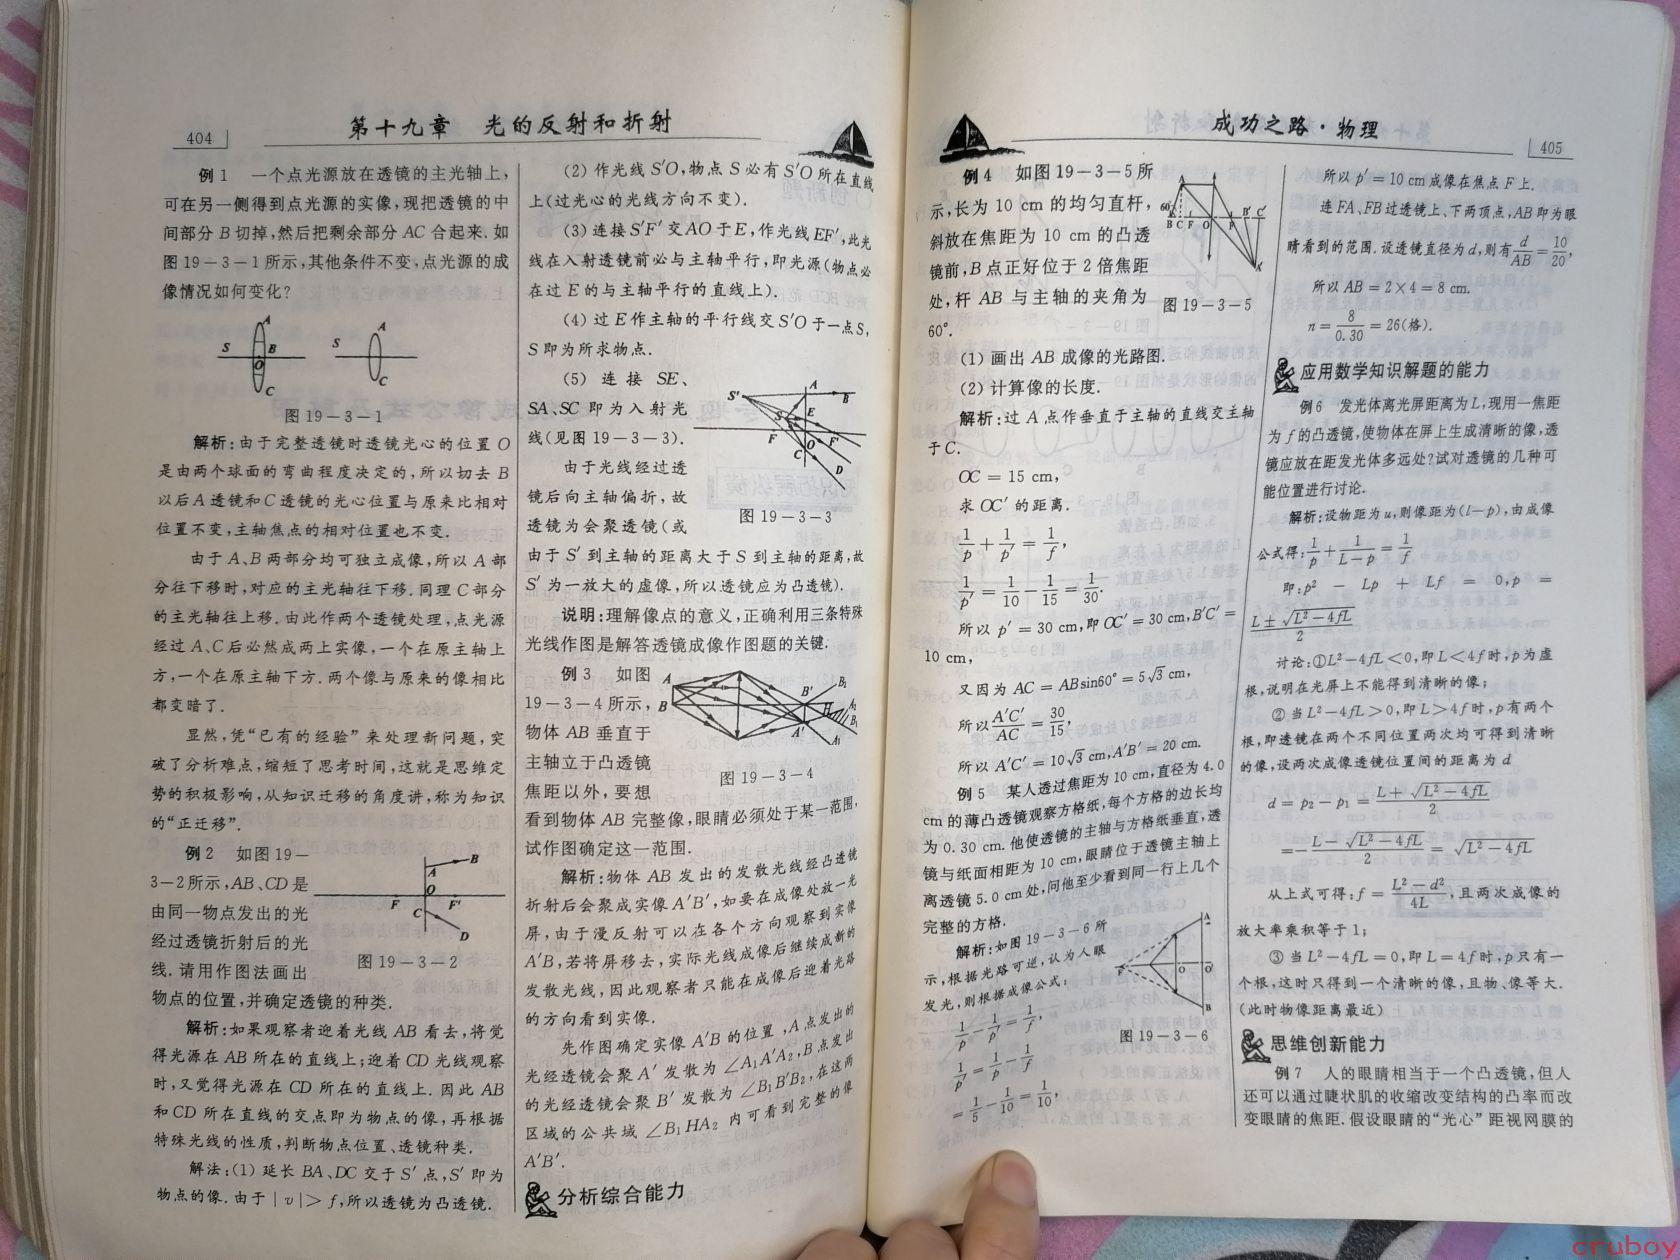 404
第十九章 光的反射和折射
例1 一个点光源放在透镜的主光轴上,
可在另一侧得到点光源的实像,现把透镜的中
间部分 B 切掉,然后把剩余部分 AC 合起来.如
图19-3-1所示,其他条件不变,点光源的成
像情况如何变化?
S A B O C
S A C
图19-3-1
解析:由于完整透镜时透镜光心的位置 O
是由两个球面的弯曲程度决定的,所以切去 B
以后A透镜和C透镜的光心位置与原来比相对
位置不变,主轴焦点的相对位置也不变.
由于A、B两部分均可独立成像,所以 A 部
分往下移时,对应的主光轴往下移.同理C部分
的主光轴往上移.由此作两个透镜处理,点光源
经过A、C后必然成两上实像,一个在原主轴上
方,一个在原主轴下方.两个像与原来的像相比
都变暗了.
显然,凭“已有的经验”来处理新问题,突
破了分析难点,缩短了思考时间,这就是思维定
势的积极影响,从知识迁移的角度讲,称为知识
的“正迁移”.
例2 如图19-
3-2所示,AB、CD是
由同一物点发出的光
经过透镜折射后的光
线.请用作图法画出
物点的位置,并确定透镜的种类.
A B O F F' C D
图19-3-2
解析:如果观察者迎着光线 AB 看去,将觉
得光源在AB所在的直线上;迎着CD光线观察
时,又觉得光源在 CD 所在的直线上.因此 AB
和CD所在直线的交点即为物点的像,再根据
特殊光线的性质,判断物点位置、透镜种类.
解法:(1)延长 BA、DC 交于 S'点,S'即为
物点的像.由于|v|>f,所以透镜为凸透镜.
(2)作光线 S'O,物点 S 必有 S'O 所在直线
上(过光心的光线方向不变).
(3)连接S'F'交AO于E,作光线EF',此光
线在入射透镜前必与主轴平行,即光源(物点必
在过E的与主轴平行的直线上).
(4)过E作主轴的平行线交S'O于一点S,
S即为所求物点.
(5)连接 SE、
SA、SC 即为入射光
线(见图19-3-3).
由于光线经过透
镜后向主轴偏折,故
透镜为会聚透镜(或
S' A B S E F O F' C D
图19-3-3
由于 S'到主轴的距离大于 S 到主轴的距离,故
S'为一放大的虚像,所以透镜应为凸透镜).
说明:理解像点的意义,正确利用三条特殊
光线作图是解答透镜成像作图题的关键.
例3 如图
19-3-4所示,
物体 AB 垂直于
主轴立于凸透镜
焦距以外,要想
A B B' A' B₁ A₂ B₁ A₁ H
图19-3-4
看到物体 AB 完整像,眼睛必须处于某一范围,
试作图确定这一范围.
解析:物体 AB 发出的发散光线经凸透镜
折射后会聚成实像A'B',如要在成像处放一光
屏,由于漫反射可以在各个方向观察到实像
A'B,若将屏移去,实际光线成像后继续成新的
发散光线,因此观察者只能在成像后迎着光路
的方向看到实像.
先作图确定实像 A'B 的位置,A点发出的
光经透镜会聚 A' 发散为∠A₁A'A₂,B点发出
的光经透镜会聚 B' 发散为∠B₁B'B₂,在这两
区域的公共域∠B₁HA₂ 内可看到完整的像
A'B'.
分析综合能力
成功之路·物理
405
例4 如图19-3-5所
示,长为 10 cm 的均匀直杆,
斜放在焦距为 10 cm 的凸透
镜前,B点正好位于2倍焦距
处,杆 AB 与主轴的夹角为
60°.
A 60° B C F O F B' C' K
图19-3-5
(1)画出 AB 成像的光路图.
(2)计算像的长度.
解析:过A点作垂直于主轴的直线交主轴
于C.
OC = 15 cm,
求OC'的距离.
1/p + 1/p' = 1/f,
1/p' = 1/10 - 1/15 = 1/30.
所以 p' = 30 cm,即OC' = 30 cm,B'C' =
10 cm,
又因为 AC = ABsin60° = 5√3 cm,
所以 A'C'/AC = 30/15,
所以 A'C' = 10√3 cm,A'B' = 20 cm.
例5 某人透过焦距为10 cm,直径为4.0
cm的薄凸透镜观察方格纸,每个方格的边长均
为 0.30 cm.他使透镜的主轴与方格纸垂直,透
镜与纸面相距为10 cm,眼睛位于透镜主轴上
离透镜5.0 cm处,问他至少看到同一行上几个
完整的方格.
解析:如图19-3-6所
示,根据光路可逆,认为人眼
发光,则根据成像公式:
A O O' B
图19-3-6
1/p - 1/p' = 1/f,
1/p' = 1/p - 1/f
= 1/5 - 1/10 = 1/10,
所以 p' = 10 cm成像在焦点F上.
连FA、FB过透镜上、下两顶点,AB即为眼
睛看到的范围.设透镜直径为d,则有 d/AB = 10/20,
所以 AB = 2×4 = 8 cm.
n = 8/0.30 = 26(格).
应用数学知识解题的能力
例6 发光体离光屏距离为L,现用一焦距
为f的凸透镜,使物体在屏上生成清晰的像,透
镜应放在距发光体多远处?试对透镜的几种可
能位置进行讨论.
解析:设物距为u,则像距为(l-p),由成像
公式得:1/p + 1/(L-p) = 1/f
即:p² - Lp + Lf = 0,p =
(L±√(L²-4fL))/2
讨论:①L²-4fL<0,即L<4f时,p为虚
根,说明在光屏上不能得到清晰的像;
②当L²-4fL>0,即L>4f时,p有两个
根,即透镜在两个不同位置两次均可得到清晰
的像,设两次成像透镜位置间的距离为d
d = p₂ - p₁ = (L+√(L²-4fL))/2
= -(L-√(L²-4fL))/2 = √(L²-4fL)
从上式可得:f = (L²-d²)/4L,且两次成像的
放大率乘积等于1;
③当L²-4fL=0,即L=4f时,p只有一
个根,这时只得到一个清晰的像,且物、像等大.
(此时物像距离最近)
思维创新能力
例7 人的眼睛相当于一个凸透镜,但人
还可以通过睫状肌的收缩改变结构的凸率而改
变眼睛的焦距.假设眼睛的“光心”距视网膜的
cruboy